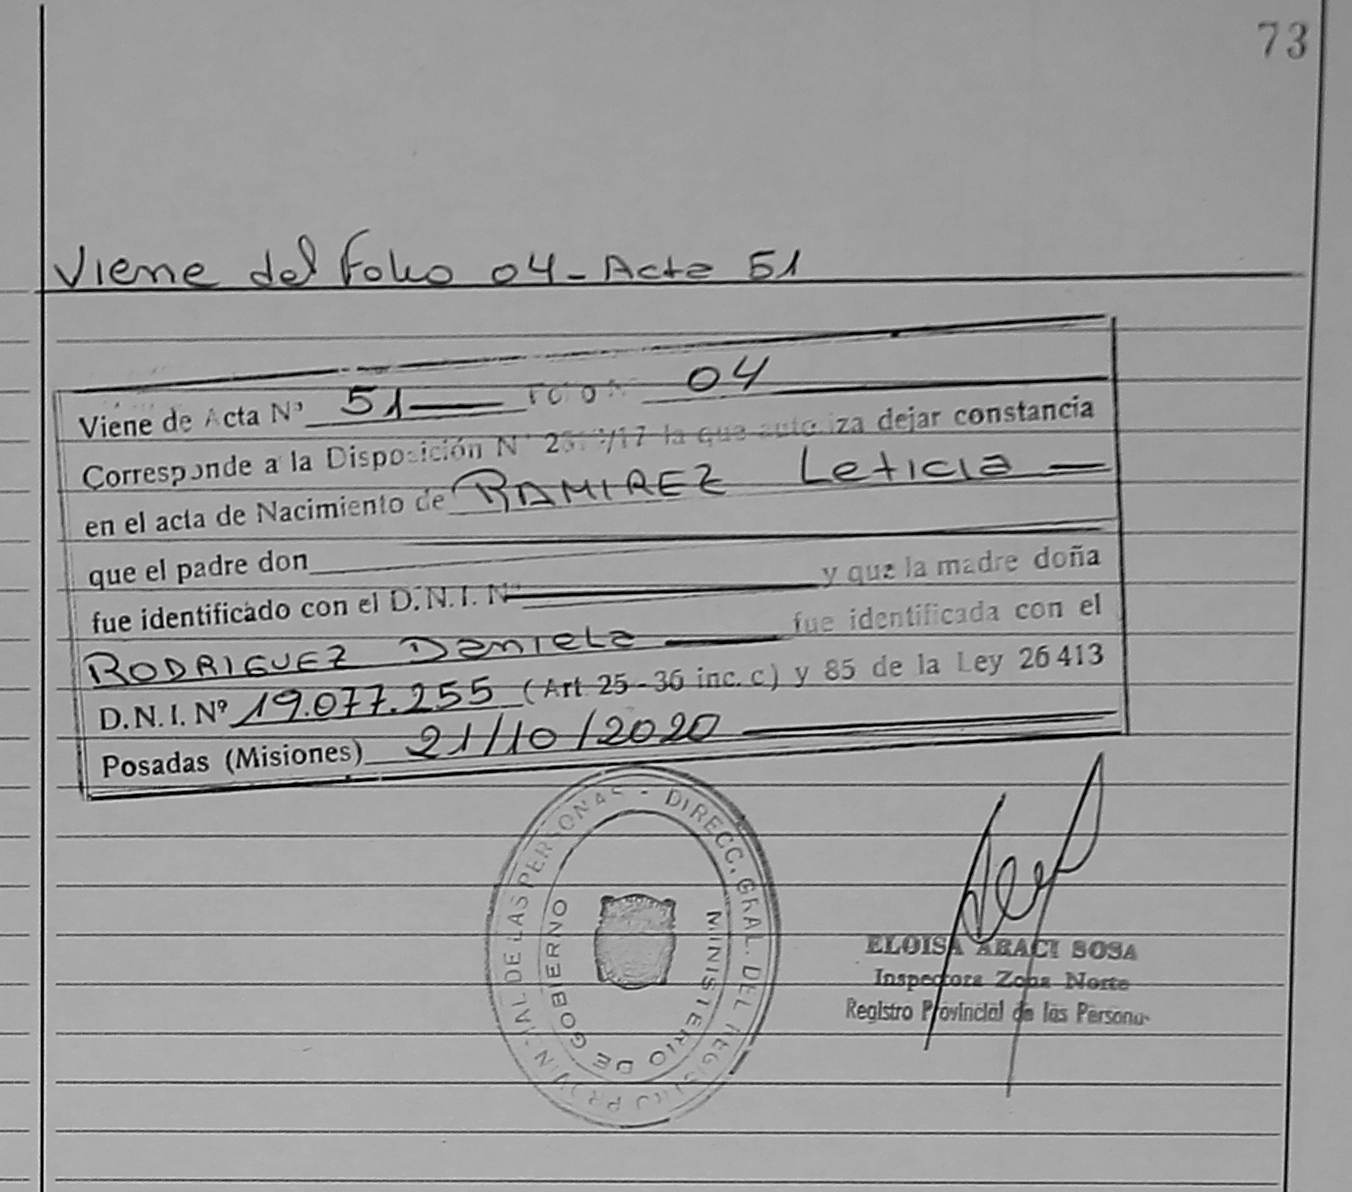 73
Viene del Folio 04 - Acta 51
Viene de Acta Nº 51 Folio Nº 04
Corresponde a la Disposición Nº /17 la que autoriza dejar constancia
en el acta de Nacimiento de RAMIREZ Leticia
que el padre don
fue identificado con el D.N.I. Nº y que la madre doña
RODRIGUEZ Daniela fue identificada con el
D.N.I. Nº 19.077.255 (Art 25-36 inc. c) y 85 de la Ley 26413
Posadas (Misiones) 21/10/2020
DIRECC. GRAL. DEL REGISTRO PROVINCIAL DE LAS PERSONAS -
MINISTERIO DE GOBIERNO
ELOISA ARACI SOSA
Inspectora Zona Norte
Registro Provincial de las Personas